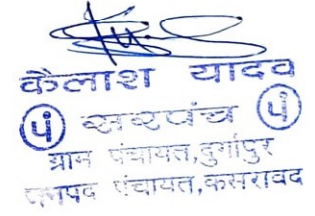 कैलाश यादव
पं सरपंच पं
ग्राम पंचायत,दुर्गापुर
जनपद पंचायत,कसरावद